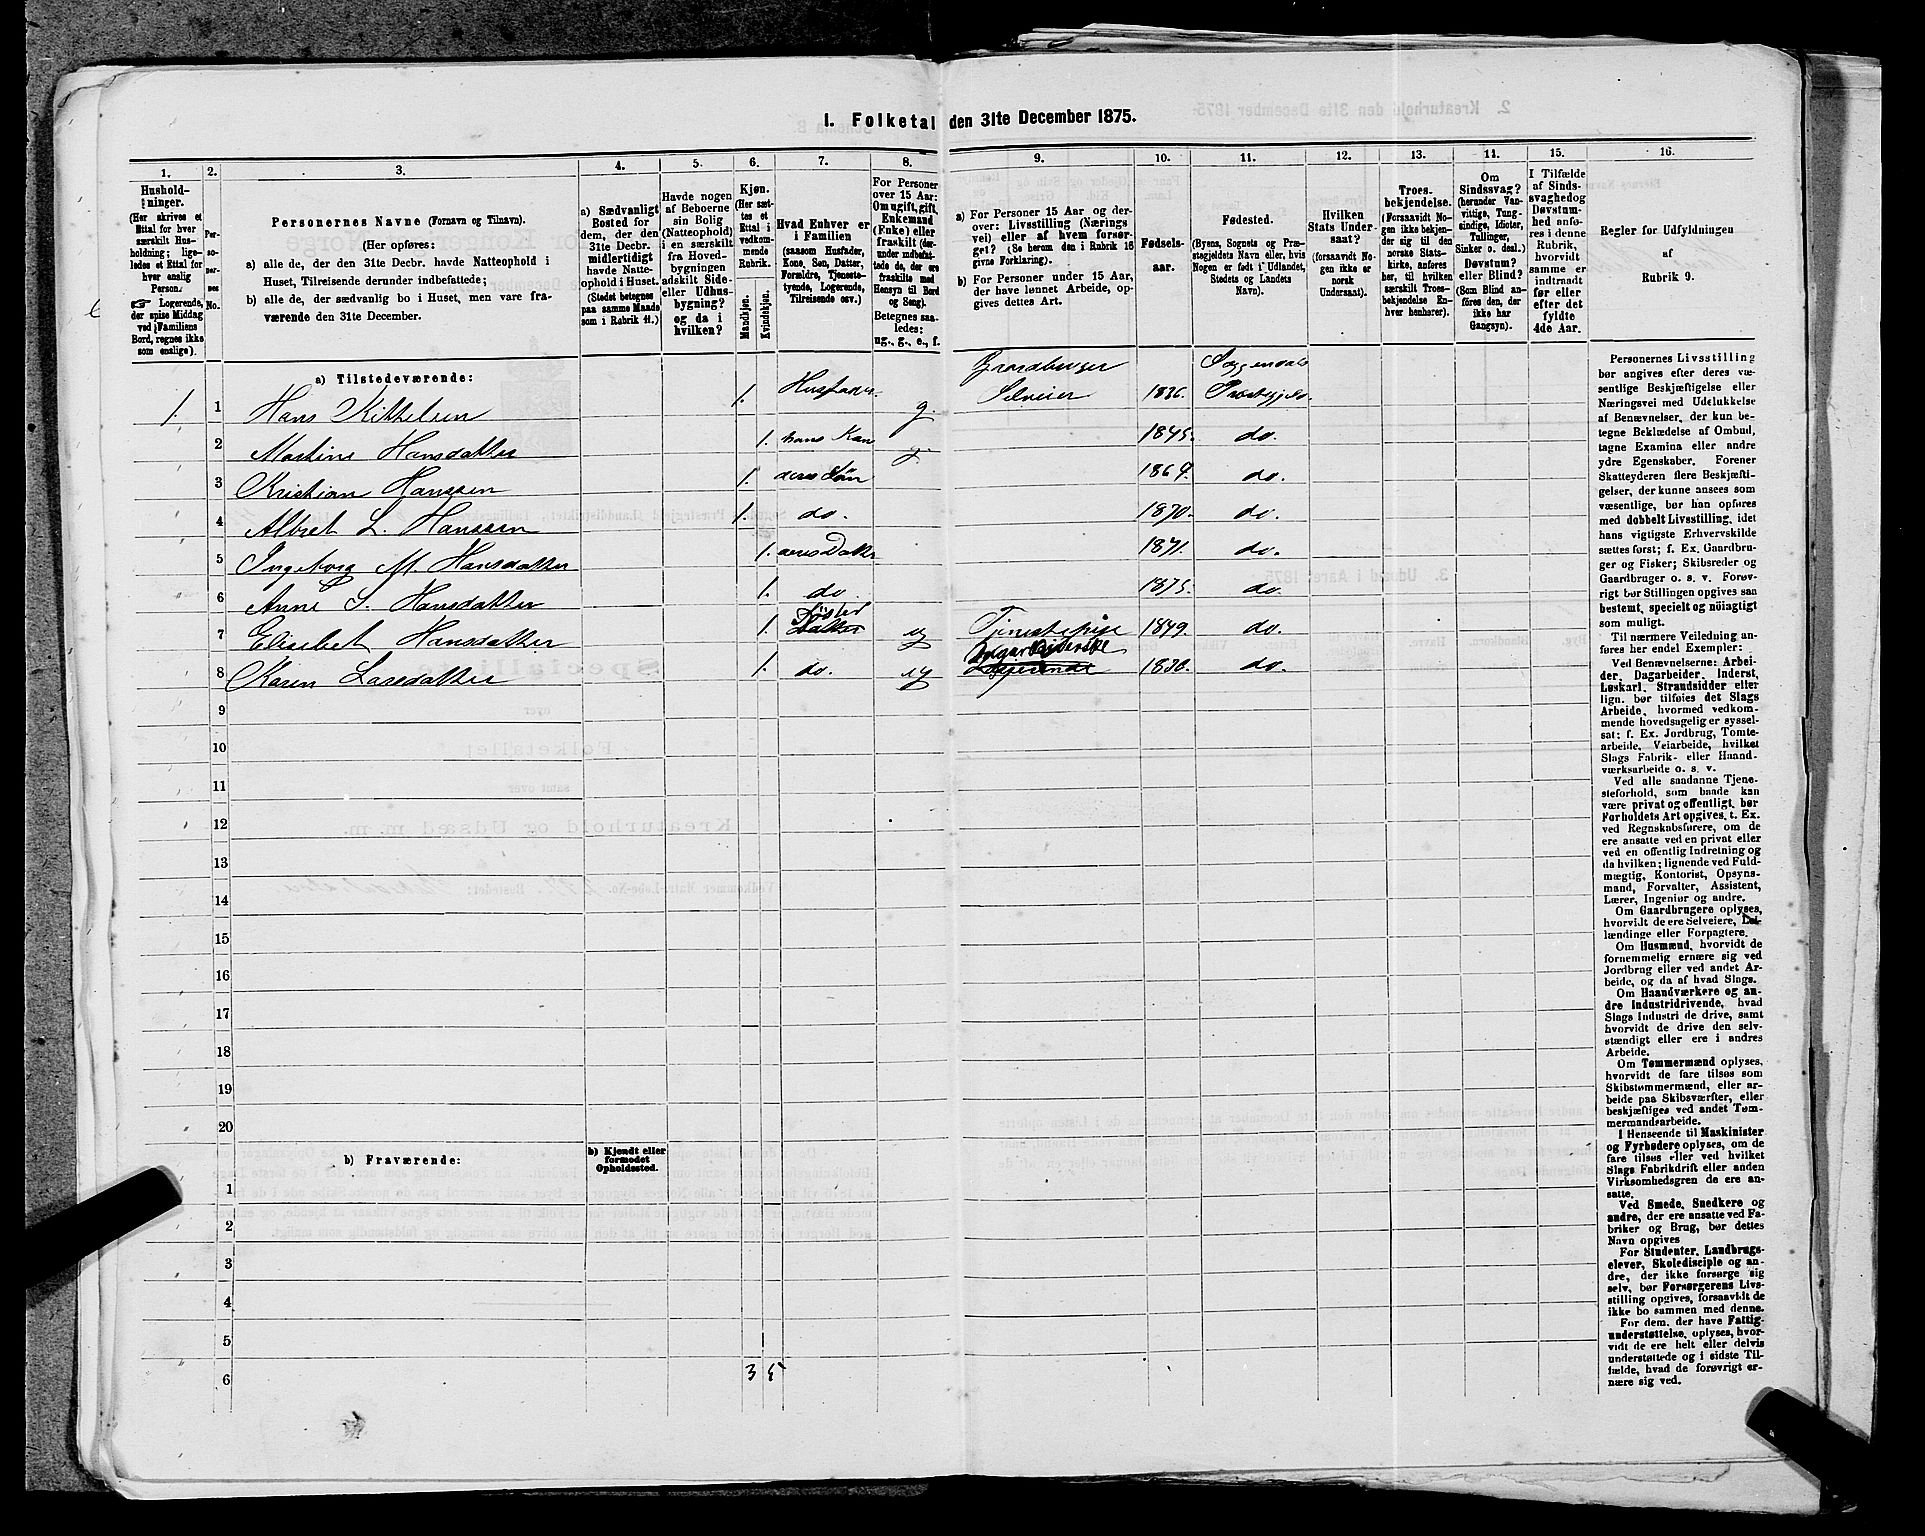 1. Folketal den 31te December 1875.
1. 2. 3. 4. 5. 6. 7. 8. 9. 10. 11. 12. 13. 14. 15. 16.
Hushold-
ninger.
(Her skrives et
Ettal for hver
særskilt Hus-
holdning; lige-
ledes et Ettal for
hver enslig
Person.
☞ Logerende,
der spise Middag
ved Familiens
Bord, regnes ikke
som enslige).
Per-
so-
ner-
nes
No.
Personernes Navne (Fornavn og Tilnavn).
(Her opføres:
a) alle de, der den 31te Decbr. havde Natteophold i
Huset, Tilreisende derunder indbefattede;
b) alle de, der sædvanlig bo i Huset, men vare fra-
værende den 31te December.
a) Sædvanligt
Bosted for
dem, der den
31te Decbr.
midlertidigt
havde Natte-
ophold i Huset.
(Stedet betegnes
paa samme Maade
som i Rubrik 11.)
Havde nogen
af Beboerne
sin Bolig
(Natteophold)
i en særskilt
fra Hoved-
bygningen
adskilt Side-
eller Udhus-
bygning?
og da i
hvilken?
Kjøn.
(Her sæt-
tes et
Ettal i
vedkom-
mende
Rubrik.
Mandkjøn.
Kvindekjøn.
Hvad Enhver er
i Familien
(saasom Husfader,
Kone, Søn, Datter,
Forældre, Tjeneste-
tyende, Logerende,
Tilreisende osv.)
For Personer
over 15 Aar:
Om ugift, gift,
Enkemand
(Enke) eller
fraskilt (der-
under indbefat-
tede de, der ere
fraskilte med
Hensyn til Bord
og Seng).
Betegnes saa-
ledes:
ug., g., e., f.
a) For Personer 15 Aar og der-
over: Livsstilling (Nærings
vei) eller af hvem forsør-
get? (Se herom den i Rubrik 16
givne Forklaring).
b) For Personer under 15 Aar,
der have lønnet Arbeide, op-
gives dettes Art.
Fødsels-
aar.
Fødested.
(Byens, Sognets og Præ-
stegjeldets Navn eller, hvis
Nogen er født i Udlandet,
Stedets og Landets
Navn).
Hvilken
Stats Under-
saat?
(forsaavidt No-
gen ikke er
norsk
Undersaat).
Troes-
bekjendelse.
(Forsaavidt No-
gen ikke bekjen-
der sig til den
norske Stats-
kirke, anføres
her, til hvilken
særskilt Troes-
bekjendelse En-
hver henhører).
Om
Sindssvag?
(herunder Van-
vittige, Tung-
sindige, Idioter,
Tullinger,
Sinker o. desl.)
Døvstum?
eller Blind?
(Som Blind an-
føres den, der
ikke har
Gangsyn).
I Tilfælde
af Sinds-
svaghed og
Døvstum-
hed anfø-
res i denne
Rubrik,
hvorvidt
samme er
indtraadt
før eller
efter det
fyldte
4de Aar.
Regler for Udfyldningen
af
Rubrik 9.
a) Tilstedeværende:
1. 1 Hans Kittelsen 1. Husfader. g. Gaardbruger Selveier 1836. Soggendals Præstegjeld.
2 Martine Hansdatter 1. hans Kone g. 1845. do.
3 Kristian Hanssen 1. deres Søn 1869. do.
4 Albret L. Hanssen 1. do. 1870. do.
5 Ingeborg M. Hansdatter 1. deres Datter 1871. do.
6 Anne S. Hansdatter 1. do. 1875. do.
7 Elisabet Hansdatter 1. Datter Søster ug Tjenestepige 1849. do.
8 Karen Larsdatter 1. do. ug Logerende Dagarbeiderske 1830. do.
9
10
11
12
13
14
15
16
17
18
19
20
b) Fraværende:
b) Kjendt eller
formodet
Opholdssted.
1
2
3
4
5
6
3 5
Personernes Livsstilling
bør angives efter deres væ-
sentlige Beskjæftigelse eller
Næringsvei med Udelukkelse
af Benævnelser, der kun be-
tegne Beklædelse af Ombud,
tagne Examina eller andre
ydre Egenskaber. Forener
Skatteyderen flere Beskjæfti-
gelser, der kunne ansees som
væsentlige, bør han opføres
med dobbelt Livsstilling, idet
hans vigtigste Erhvervskilde
sættes først; f. Ex. Gaardbru-
ger og Fisker; Skibsreder og
Gaardbruger o. s. v. Forøv-
rigt bør Stillingen opgives saa
bestemt, specielt og nöiagtigt
som muligt.
Til nærmere Veiledning an-
føres her endel Exempler:
Ved Benævnelserne: Arbei-
der, Dagarbeider, Inderst,
Løskarl, Strandsidder eller
lign. bør tilføies det Slags
Arbeide, hvormed vedkom-
mende hovedsagelig er syssel-
sat; f. Ex. Jordbrug, Tomte-
arbeide, Veiarbeide, hvilket
Slags Fabrik- eller Haand-
værksarbeide o. s. v.
Ved alle saadanne Tjene-
steforhold, som baade kan
være privat og offentligt, bør
Forholdets Art opgives, t. Ex.
ved Regnskabsførere, om de
ere ansatte ved en privat eller
ved en offentlig Indretning og
da hvilken; lignende ved Fuld-
mægtig, Kontorist, Opsyns-
mand, Forvalter, Assistent,
Lærer, Ingeniør og andre.
Om Gaardbrugere oplyses,
hvorvidt de ere Selveiere, Lei-
lændinge eller Forpagtere.
Om Husmænd, hvorvidt de
fornemmelig ernære sig ved
Jordbrug eller ved andet Ar-
beide, og da af hvad Slags.
Om Haandværkere og an-
dre Industridrivende, hvad
Slags Industri de drive, samt
hvorvidt de drive den selv-
stændigt eller ere i andres
Arbeide.
Om Tømmermænd oplyses,
hvorvidt de fare tilsøs som
Skibstømmermænd, eller ar-
beide paa Skibsværfter, eller
beskjæftiges ved andet Tøm-
mermandsarbeide.
I Henseende til Maskinister
og Fyrbødere oplyses, om de
fare tilsøs eller ved hvilket
Slags Fabrikdrift eller anden
Virksomhedsgren de ere an-
satte.
Ved Smede, Snedkere og
andre, der ere ansatte ved Fa-
briker og Brug, bør dettes
Navn opgives
For Studenter, Landbrugs-
elever, Skoledisciple og an-
dre, der ikke forsørge sig
selv, bør Forsørgerens Livs-
stilling opgives, forsaavidt de
ikke bo sammen med denne.
For dem, der have Fattig-
understøttelse, oplyses, hvor-
vidt de ere helt eller delvis
understøttede og i sidste Til-
fælde, hvad de forøvrigt er-
nære sig ved.